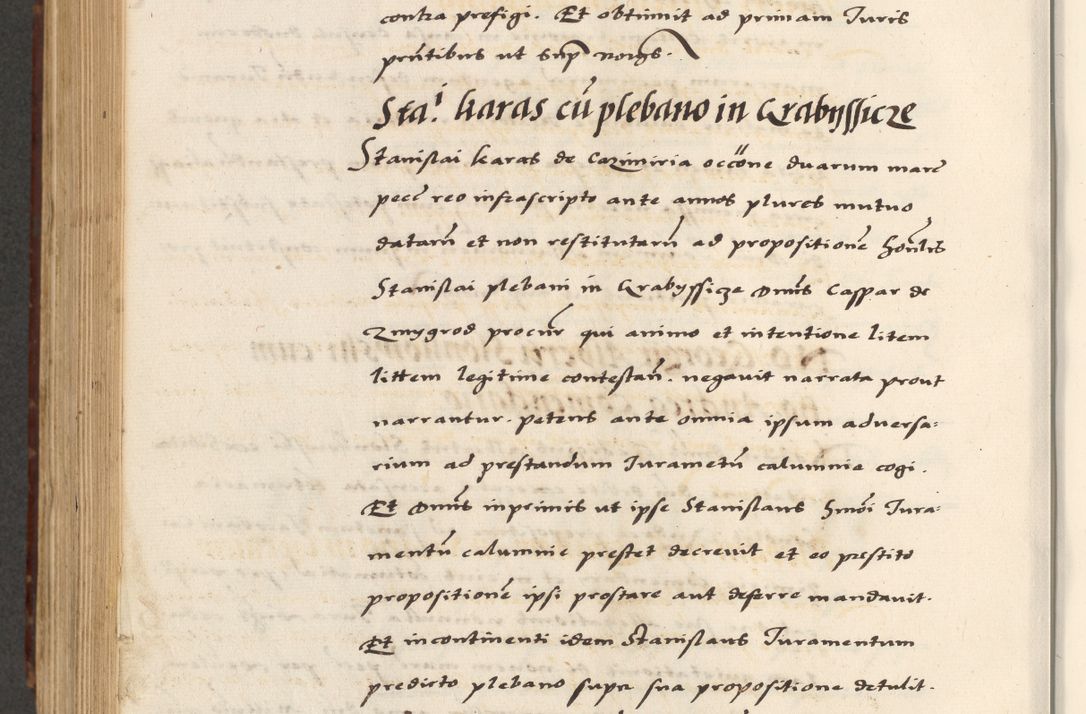 contra prefigi. Et obtinuit ad primam Juris
pntibus ut Sup noīs.
Sta.i karas cū plebano in Grabyssicze
Stanislai karas de Cazimiria occōne duarum marc
pecē reo infrascripto ante annos plures mutuo
datarū et non restitutarū ad propositionē honlis
Stanislai plebani in Grabyssicze Dnūs Caspar de
Zmygrod procur qui animo et intentione litem
littem legitime contestan̄. negavit narrata prout
narrantur. petens ante omnia ipsum adversa:
rium ad prestandum Jurametū calumnie cogi.
Et Dnūs inprimis ut ipse Stanislaus hmōi Jura:
mentū calumnie prestet decrevit et eo prestito
propositionē ipsi prostare aut deferre mandavit.
Et incontinenti idem Stanislaus Juramentum
predicto plebano super sua propositione detulit.